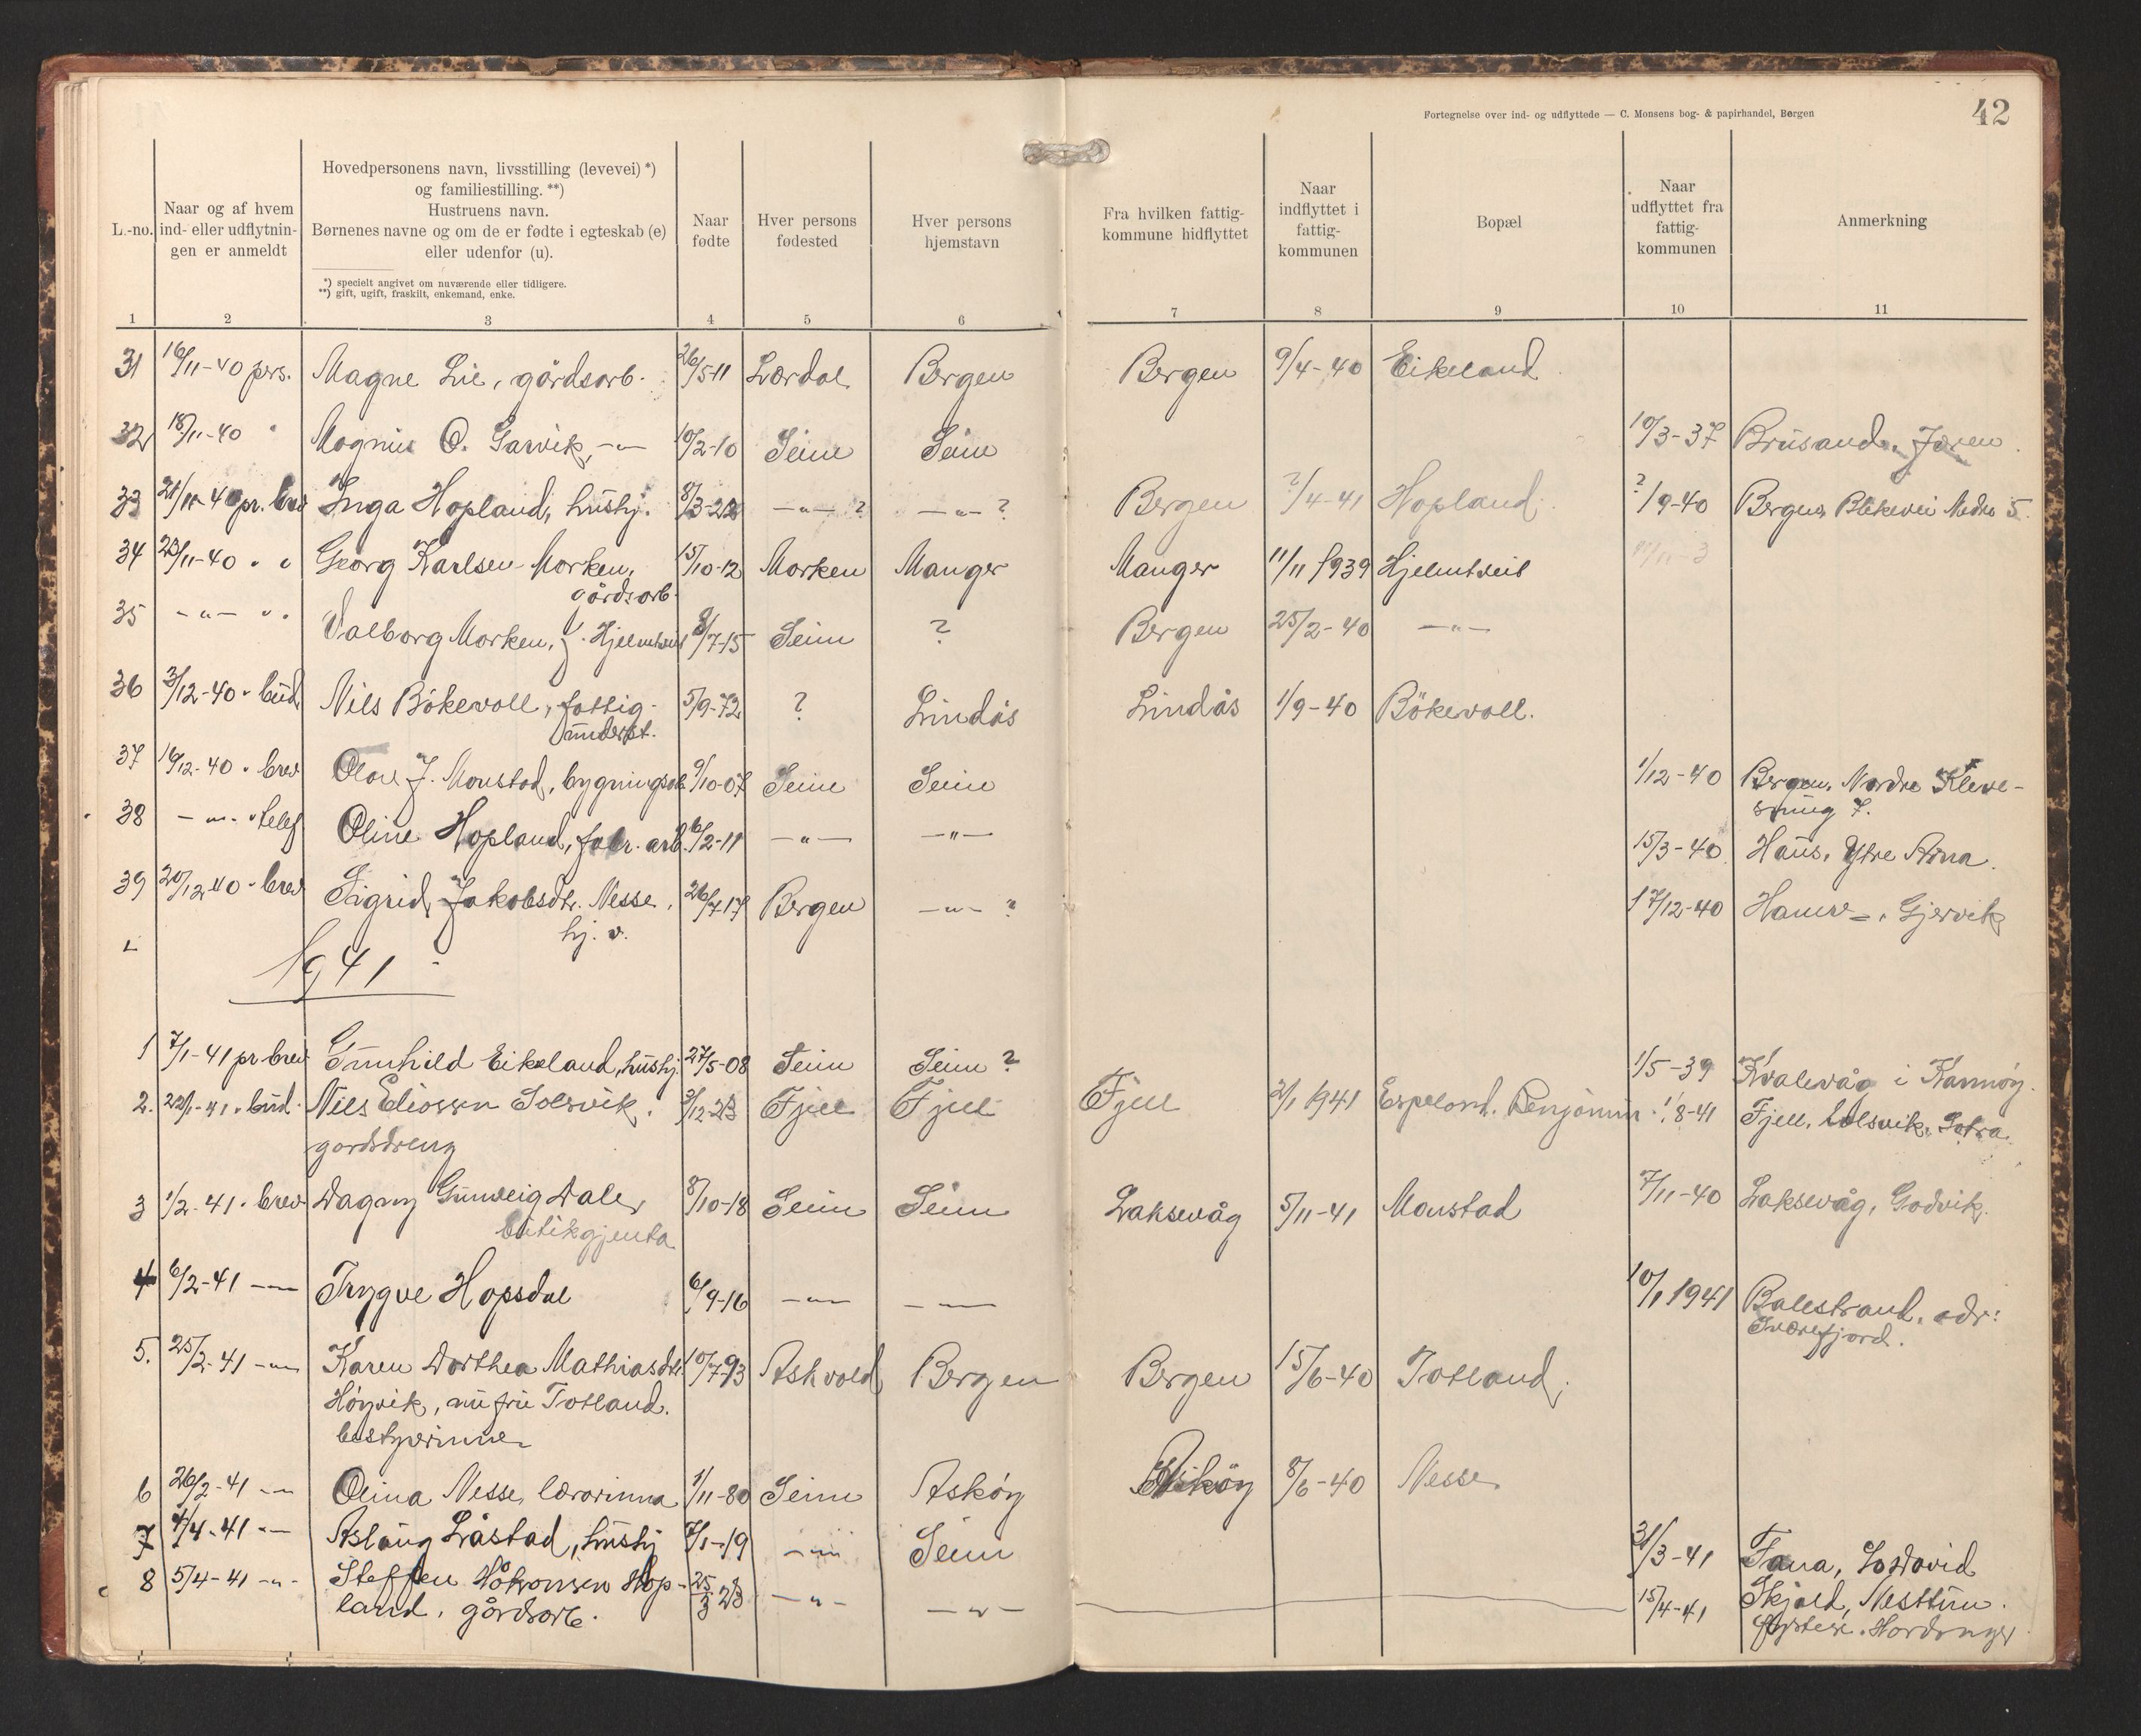 Fortegnelse over ind- og udflyttede — C. Monsens bog- & papirhandel, Bergen
42
L.-no.
Naar og af hvem
ind- eller udflytnin-
gen er anmeldt
Hovedpersonens navn, livsstilling (levevei) *)
og familiestilling. **)
Hustruens navn.
Børnenes navne og om de er fødte i egteskab (e)
eller udenfor (u).
*) specielt angivet om nuværende eller tidligere.
**) gift, ugift, fraskilt, enkemand, enke.
Naar
fødte
Hver persons
fødested
Hver persons
hjemstavn
Fra hvilken fattig-
kommune hidflyttet
Naar
indflyttet i
fattig-
kommunen
Bopæl
Naar
udflyttet fra
fattig-
kommunen
Anmerkning
1 2 3 4 5 6 7 8 9 10 11
31 16/11-40 pers. Magne Lie, gårdsarb. 26/5-11 Lærdal Bergen Bergen 9/4-40 Eikeland
32 18/11-40 " Magnus O. Garvik, -"- 10/2-10 Seim Seim 10/3-37 Brusand, Jæren.
33 21/11-40 pr. brev Inga Hopland, hushj. 8/3-22 -"- ? -"- ? Bergen ?/4-41 Hopland ?/9-40 Bergen, Blekevei Nedre 5.
34 23/11-40 " " Georg Karlsen Morken, 15/10-12 Morken Manger Manger 11/11 1939 Hjelmtveit
gårdsarb.
35 -"- " " Valborg Morken, f. Hjelmtveit 8/7-15 Seim ? Bergen 25/2-40 -"-
36 3/12-40 " bud Nils Bökevoll, fattig- 5/9-72 ? Lindås Lindås 1/9-40 Bökevoll.
underst.
37 16/12-40 " brev Olav J. Monstad, bygningsarb 9/10-07 Seim Seim 1/12-40 Bergen, Nordre Kleve-
smug 7.
38 -"- " telef Oline Hopland, fabr. arb. 6/2-11 -"- -"- 15/3-40 Haus, Ytre Arna.
39 20/12 40 " brev Sigrid Jakobsdtr. Nesse, 26/7-17 Bergen -"- ? 17/12-40 Hamre, Gjervik
hj. v.
1941
1 7/1-41 pr brev Gunhild Eikeland, hushj. 27/5-08 Seim Seim ? 1/5-39 Kvalevåg i Karmöy.
2. 22/1-41 " bud. Nils Eliassen Solsvik. 3/12-23 Fjell Fjell Fjell 2/1 1941 Espeland. Benjamin 1/8-41 Fjell, Solsvik, Sotra
gardsdreng
3 1/2-41 " brev Dagny Gunveig Dale, 8/10-18 Seim Seim Laksevåg 5/11-41 Monstad 7/11-40 Laksevåg, Godvik.
butikgjenta
4 6/2-41 -"- Trygve Hopsdal 6/9-16 -"- -"- 10/1 1941 Balestrand, adr:
Sværefjord.
5. 25/2-41 -"- Karen Dorthea Mathiasdtr. 10/7-93 Askvold Bergen Bergen 15/6-40 Totland
Höyvik, nu fru Totland.
bestyerinne
6 26/2-41 -"- Olina Nesse, lærarinna 1/11-80 Seim Asköy Asköy 8/6-40 Nesse
7 4/4-41 -"- Aslaug Låstad, hushj 7/1-19 -"- Seim 31/3-41 Fana,
8 5/4-41 -"- Steffen Håkonsen Hop- 25/3 23 -"- -"- 15/4-41 Skjold, Nesttun.
land, gårdsarb. Hardanger